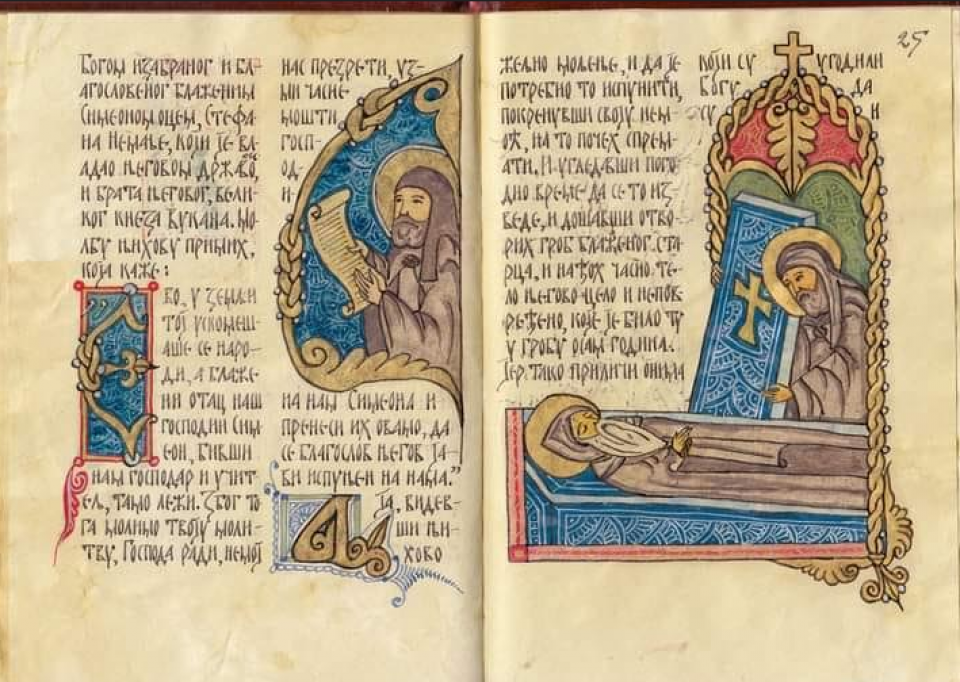 Богом изабраног и бл-
агословеног блаженим
Симеоном оцем, Стефа
на Немање, који је вл
адао његовом државо,
и брата његовог, вели-
ког кнеза Вукана. Мо
лбу њихову примих,
која каже:
Ибо, у земљи
тој ускомеш-
аше се наро-
ди, а блаже
ни отац наш
господин Сим
еон, бивши
нам господар и учит
ељ, тамо лежи. Због то
га молимо твоју моли-
тву, Господа ради, немој
нас презрети, уз-
ми часне
мошти
госп-
од-
и-
на нам Симеона и
пренеси их овамо, да
се благослов његов ја-
ви испуњен на нама."
А ја, видев-
ши њи-
хово
25
жељно мољење, и да је
потребно то испунити,
покренувши своју нем-
оћ, на то почех спрем-
ати. И угледавши пого
дно време да се то из-
веде, и дошавши отво
рих гроб блаженог ста
рца, и нађох часно те-
ло његово цело и непов
ређено, које је било ту
у гробу осам година.
Јер тако приличи онима
који су угодили
Богу да
су и